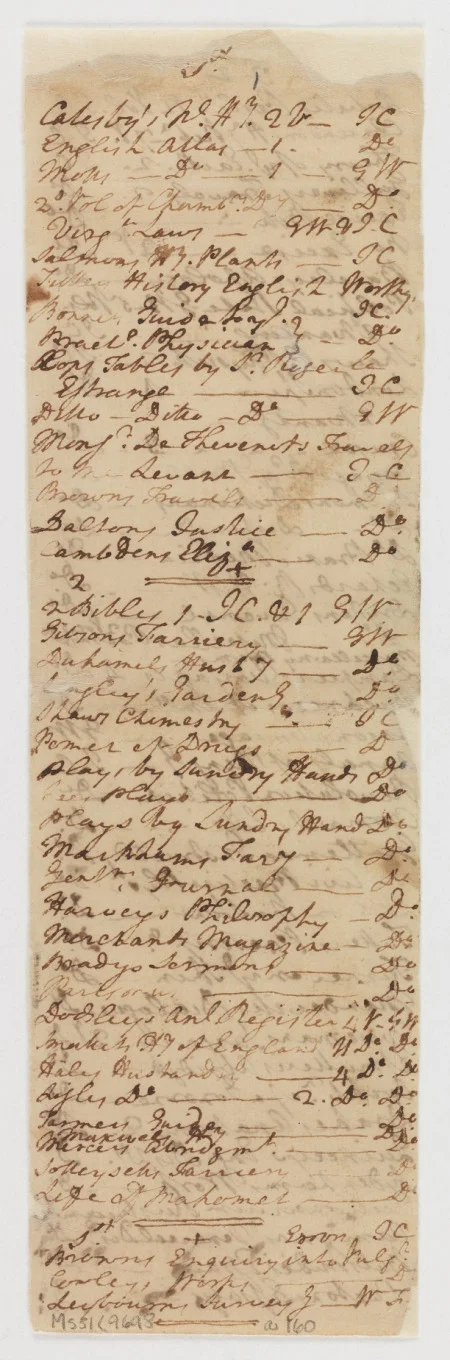 1st
Catesby's Nl. Hy. 2 V — J C
English Atlas — 1 . Do
Molls — Do — 1 — G W
2d Vol of Chambs. Dy — Do
Virga Laws — G W & J. C
Salmons Hy. Plants — J C
History English Worthy,
Bonnes Guide J C.
Practl. Physician — Do
Esops Tables by Sr. Rogerle
Estrange — J C
Ditto — Ditto — Do G W
Monsr. De Thevenots Travels
to the Levant — J - C
Browns Travels — D
Daltons Justice — Do
Cambdens Eliza — Do
2
2 Bibles 1 J C. & 1 G W
Gibsons Farriery — G W
Duhamels Husby — Do
Langley's Garden'g Do
Shaws Chimestry — J C
Pomet of Drugs — D
Plays by Sundry Hands Do
Plays — Do
Plays by Sundry Hand Do
Markhams Fary — Do
Gentms. Journal — Do
Harveys Philosophy — Do
Merchants Magazine — Do
Bradys Sermons — Do
— Do
Dodsleys Anl Register 4 V. G W
Smolets Hy of England 11 Do Do
Hales Husbandry — 4 Do. Do
Lisles Do — 2. Do Do
Farmers Guide — Do
Maxwels Hy — Do
Mercers Abridgmt. — Do
Solleysels Farriery — D
Life of Mahomet — Do
1st + Error J C
Browns Enquiry into Vulg
Cowleys Works — D
Leybourns Survey'g — W F
Mss1L9693 a 160